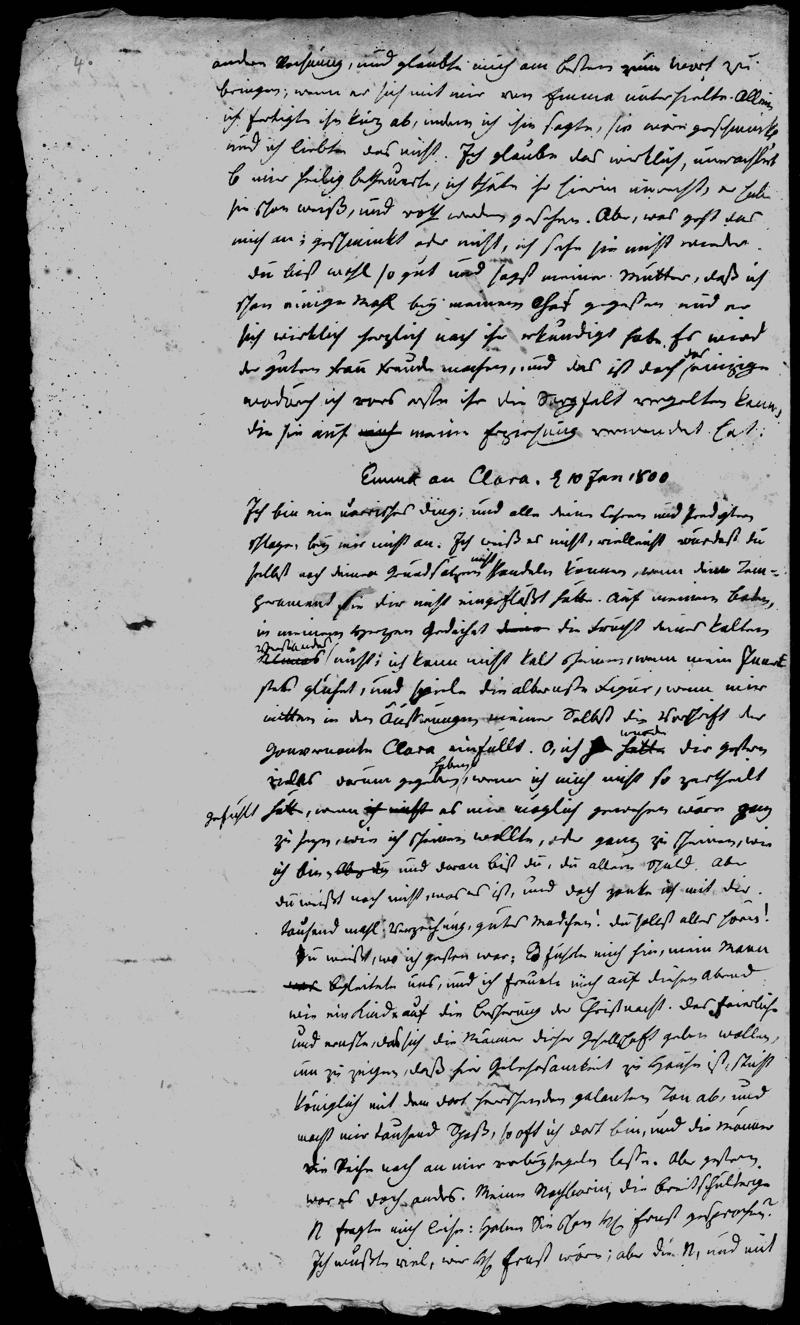 4.
andrer Meinung, und glaubte mich am besten zum Wort zu
bringen, wenn er sich mit mir von Emma unterhielte. Allein
ich fertigte ihn kurz ab, indem ich ihm sagte, sie wäre geschminkt
und ich liebte das nicht. Ich glaube das wirklich, unerachtet
E mir heilig betheuerte, ich thäte ihr hierin unrecht, er habe
sie schon weiß, und roth werden gesehen. Aber, was geht das
mich an; geschminkt oder nicht, ich sehe sie nicht wieder.
Du bist wohl so gut und sagst meiner Mutter, daß ich
schon einige Mahl bey meinem Chef gegessen und er
sich wirklich herzlich nach ihr erkundigt habe. Es wird
der guten Frau Freude machen, und das ist doch das einzige
wodurch ich vors erste ihr die Sorgfalt vergelten kann,
die sie auf meine Erziehung verwendet hat.
Emma an Clara. d 10 Jan 1800
Ich bin ein närrisches Ding; und alle deine Lehren und Predigten
schlagen bey mir nicht an. Ich weiß es nicht, vielleicht würdest du
selbst nach deinen Grundsätzen nicht handeln können, wenn dein Tem-
perament sie dir nicht eingeflößt hätte. Auf meinem Boden,
in meinem Herzen gedeihet die Frucht deines kalten
Verstandes nicht; ich kann nicht kalt scheinen, wenn mein Inneres
stets glühet, und spiele die albernste Figur, wenn mir
mitten in den Äußerungen meiner Selbst die Vorschrift der
Gouvernante Clara einfällt. O, ich würde dir gestern
vieles darum gegeben haben, wenn ich mich nicht so zertheilt
gefühlt hätte, wenn es mir möglich gewesen wäre ganz
zu seyn, wie ich scheinen wollte, oder ganz zu scheinen, wie
ich bin, und daran bist du, du allein Schuld. Aber
du weißt noch nicht, was es ist, und doch zanke ich mit dir.
Tausend mahl Verzeihung, gutes Mädchen! du sollst alles hören!
Du weißt, wo ich gestern war; E führte mich hin, mein Mann
begleitete uns, und ich freute mich auf diesen Abend
wie ein Kind auf die Bescherung der Christnacht. Das feierliche
und ernste, das sich die Männer dieser Gesellschaft geben wollen,
um zu zeigen, daß hier Gelehrsamkeit zu Hause ist, sticht
königlich mit dem dort herrschenden galanten Ton ab, und
macht mir tausend Spaß, so oft ich dort bin, und die Männer
die Reihe nach an mir vorbeysegeln lasse. Aber gestern
war es doch anders. Meine Nachbarin, die breitschultrige
N fragte mich leise: Haben Sie schon H Ernst gesprochen?
Ich wußte viel, wer H Ernst wäre; aber die N, und mit